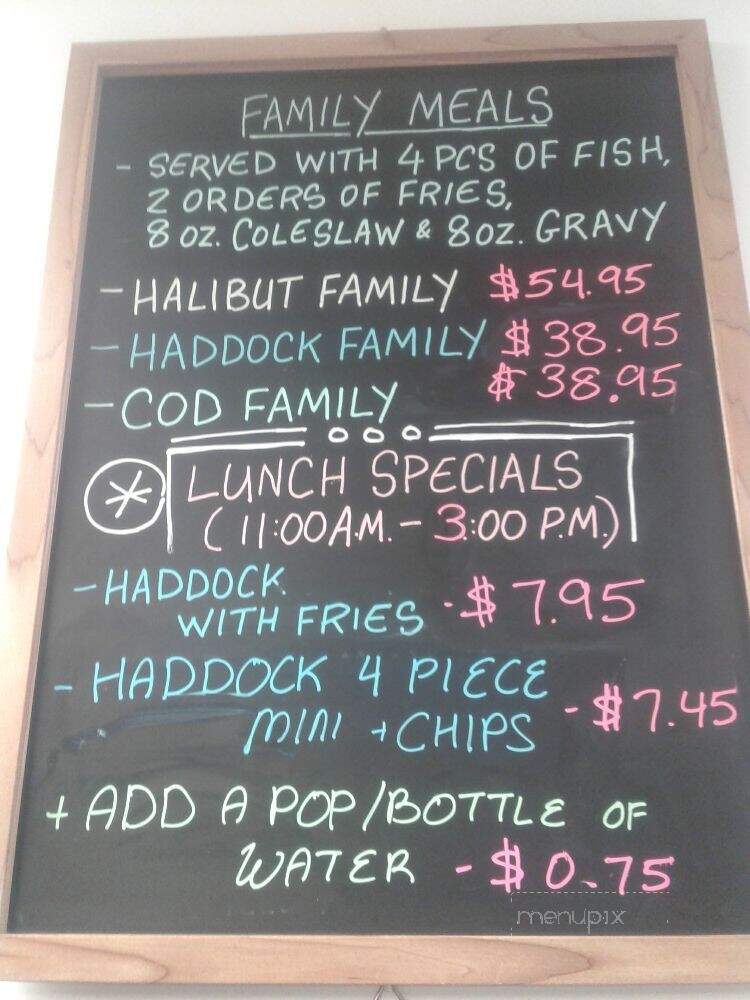 FAMILY MEALS
- SERVED WITH 4 PCS OF FISH,
2 ORDERS OF FRIES,
8 OZ. COLESLAW & 8OZ. GRAVY
- HALIBUT FAMILY $54.95
- HADDOCK FAMILY $38.95
- COD FAMILY $38.95
* LUNCH SPECIALS
(11:00A.M. - 3:00 P.M.)
- HADDOCK
WITH FRIES - $7.95
- HADDOCK 4 PIECE
MINI + CHIPS - $7.45
+ ADD A POP/BOTTLE OF
WATER - $0.75
menupix